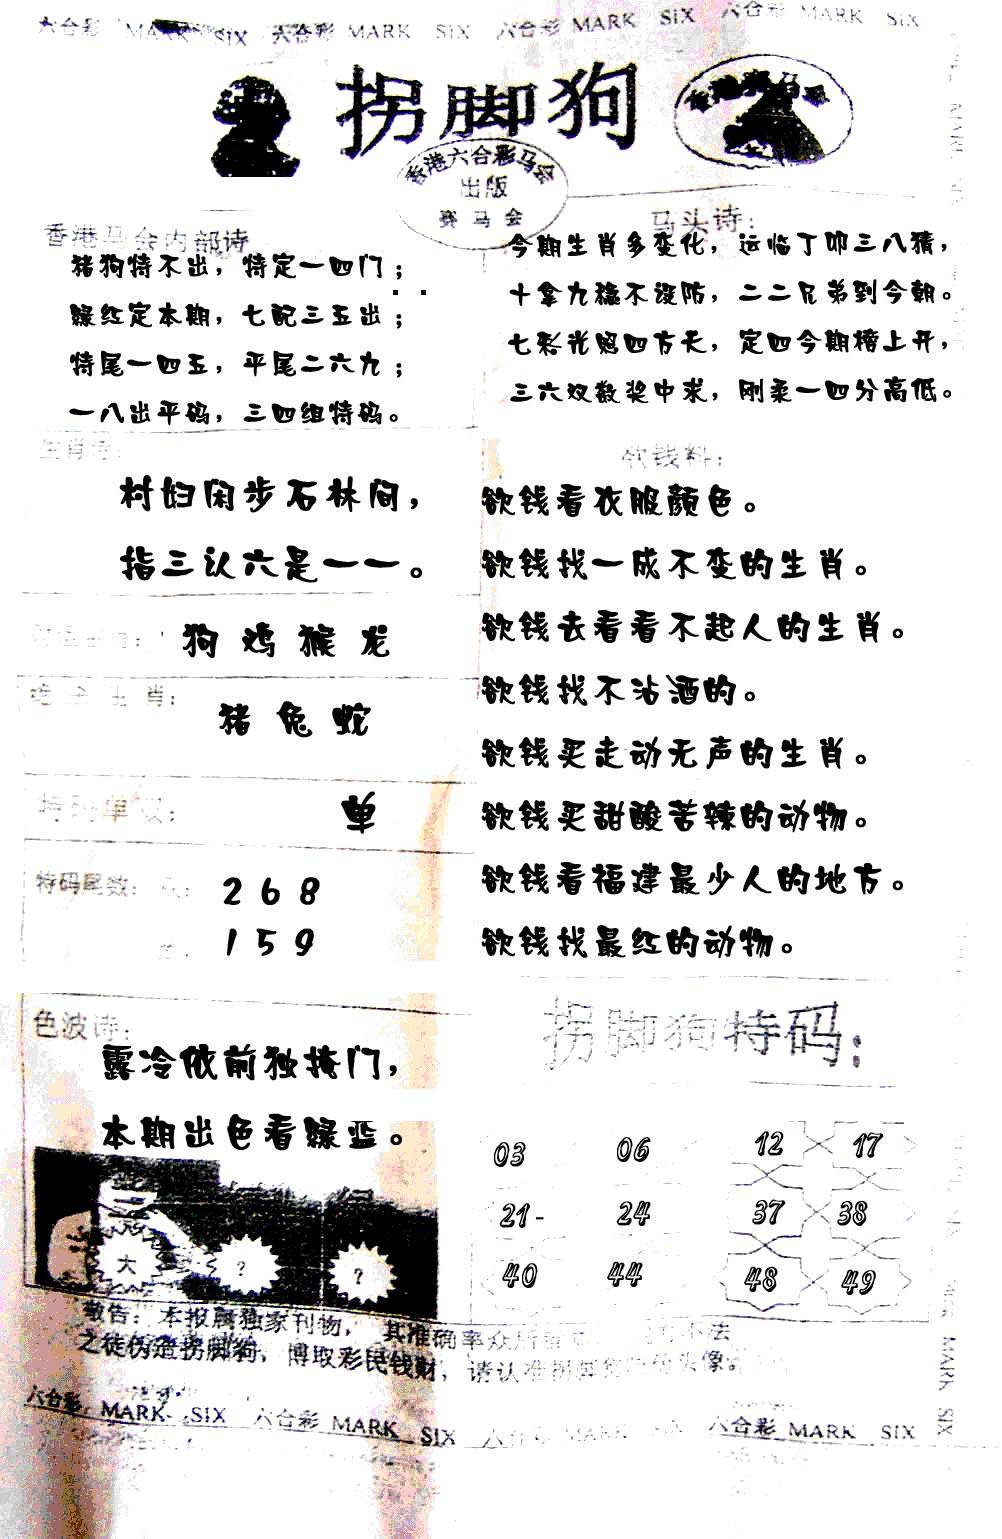 六合彩 MARK SIX 六合彩 MARK SIX 六合彩 MARK SIX 六合彩 MARK SIX
拐脚狗
香港六合彩马会
出版
赛马会
香港马会内部诗
猪狗特不出，特定一四门；
绿红定本期，七配三五出；
特尾一四五，平尾二六九；
一八出平码，三四组特码。
马头诗：
今期生肖多变化，运临丁卯三八猜，
十拿九稳不设防，二二兄弟到今朝。
七彩光照四方天，定四今期榜上开，
三六双数奖中求，刚柔一四分高低。
生肖诗：
村妇闲步石林间，
指三认六是一一。
狗 鸡 猴 龙
生肖：
猪 兔 蛇
特码单双：
单
特码尾数：
2 6 8
1 5 9
欲钱料：
欲钱看衣服颜色。
欲钱找一成不变的生肖。
欲钱去看看不起人的生肖。
欲钱找不沾酒的。
欲钱买走动无声的生肖。
欲钱买甜酸苦辣的动物。
欲钱看福建最少人的地方。
欲钱找最红的动物。
色波诗：
露冷依前独掩门，
本期出色看绿蓝。
大 ? ?
拐脚狗特码：
03 06 12 17
21- 24 37 38
40 44 48 49
敬告：本报属独家刊物，其准确率众所 不法
之徒伪造拐脚狗，博取彩民钱财，请认准拐脚狗 头像。
六合彩 MARK SIX 六合彩 MARK SIX 六合彩 MARK SIX 六合彩 MARK SIX
MARK SIX